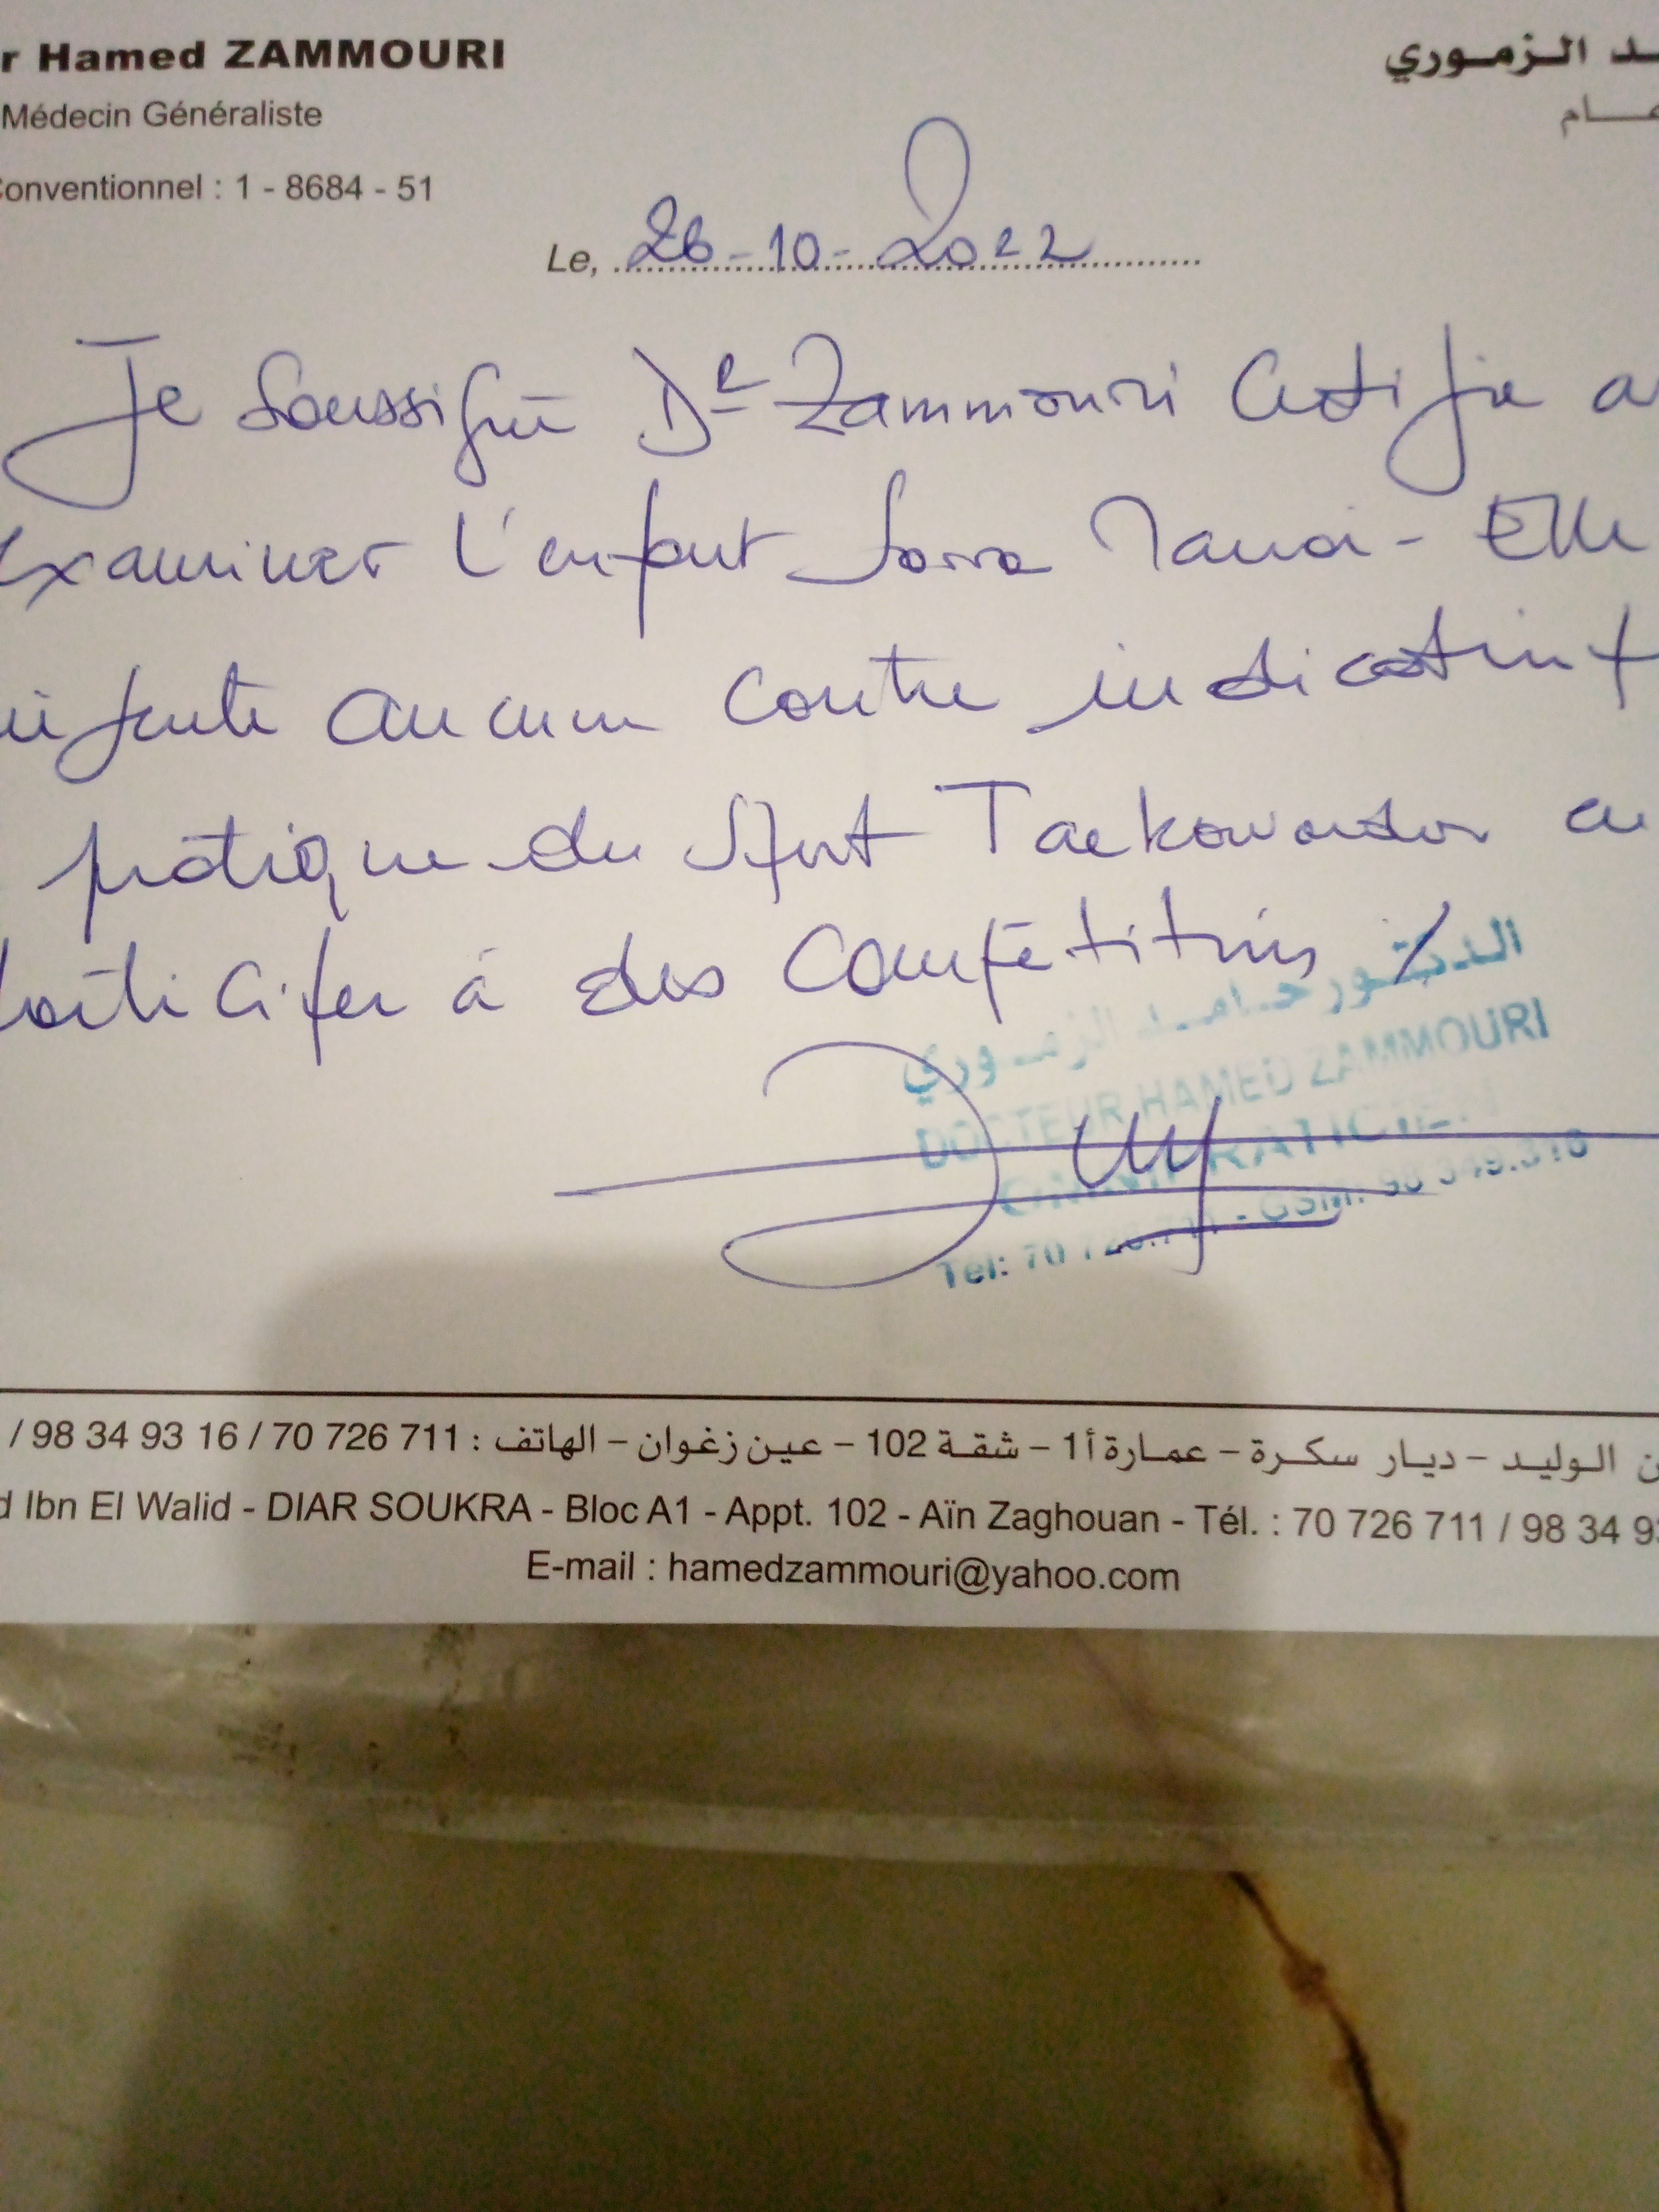 r Hamed ZAMMOURI
ـد الـزمـوري
Médecin Généraliste
عـــام
Conventionnel : 1 - 8684 - 51
Le, 26-10-2022
Je soussigné Dr Zammouri Certifie a
Examiner l'enfant Sarra - Elle
aucune contre indication
pratique du Sport Taekowondo
participer à des Compétitions
الدكتور حـامـد الزمـوري
DOCTEUR HAMED ZAMMOURI
Tel: 70 726.711 - GSM: 98 349.316
/ 98 34 93 16 / 70 726 711 : ن الـوليـد – ديـار سكـرة – عمـارة أ1 – شقـة 102 – عيـن زغـوان – الهاتف
d Ibn El Walid - DIAR SOUKRA - Bloc A1 - Appt. 102 - Aïn Zaghouan - Tél. : 70 726 711 / 98 34 93
E-mail : hamedzammouri@yahoo.com